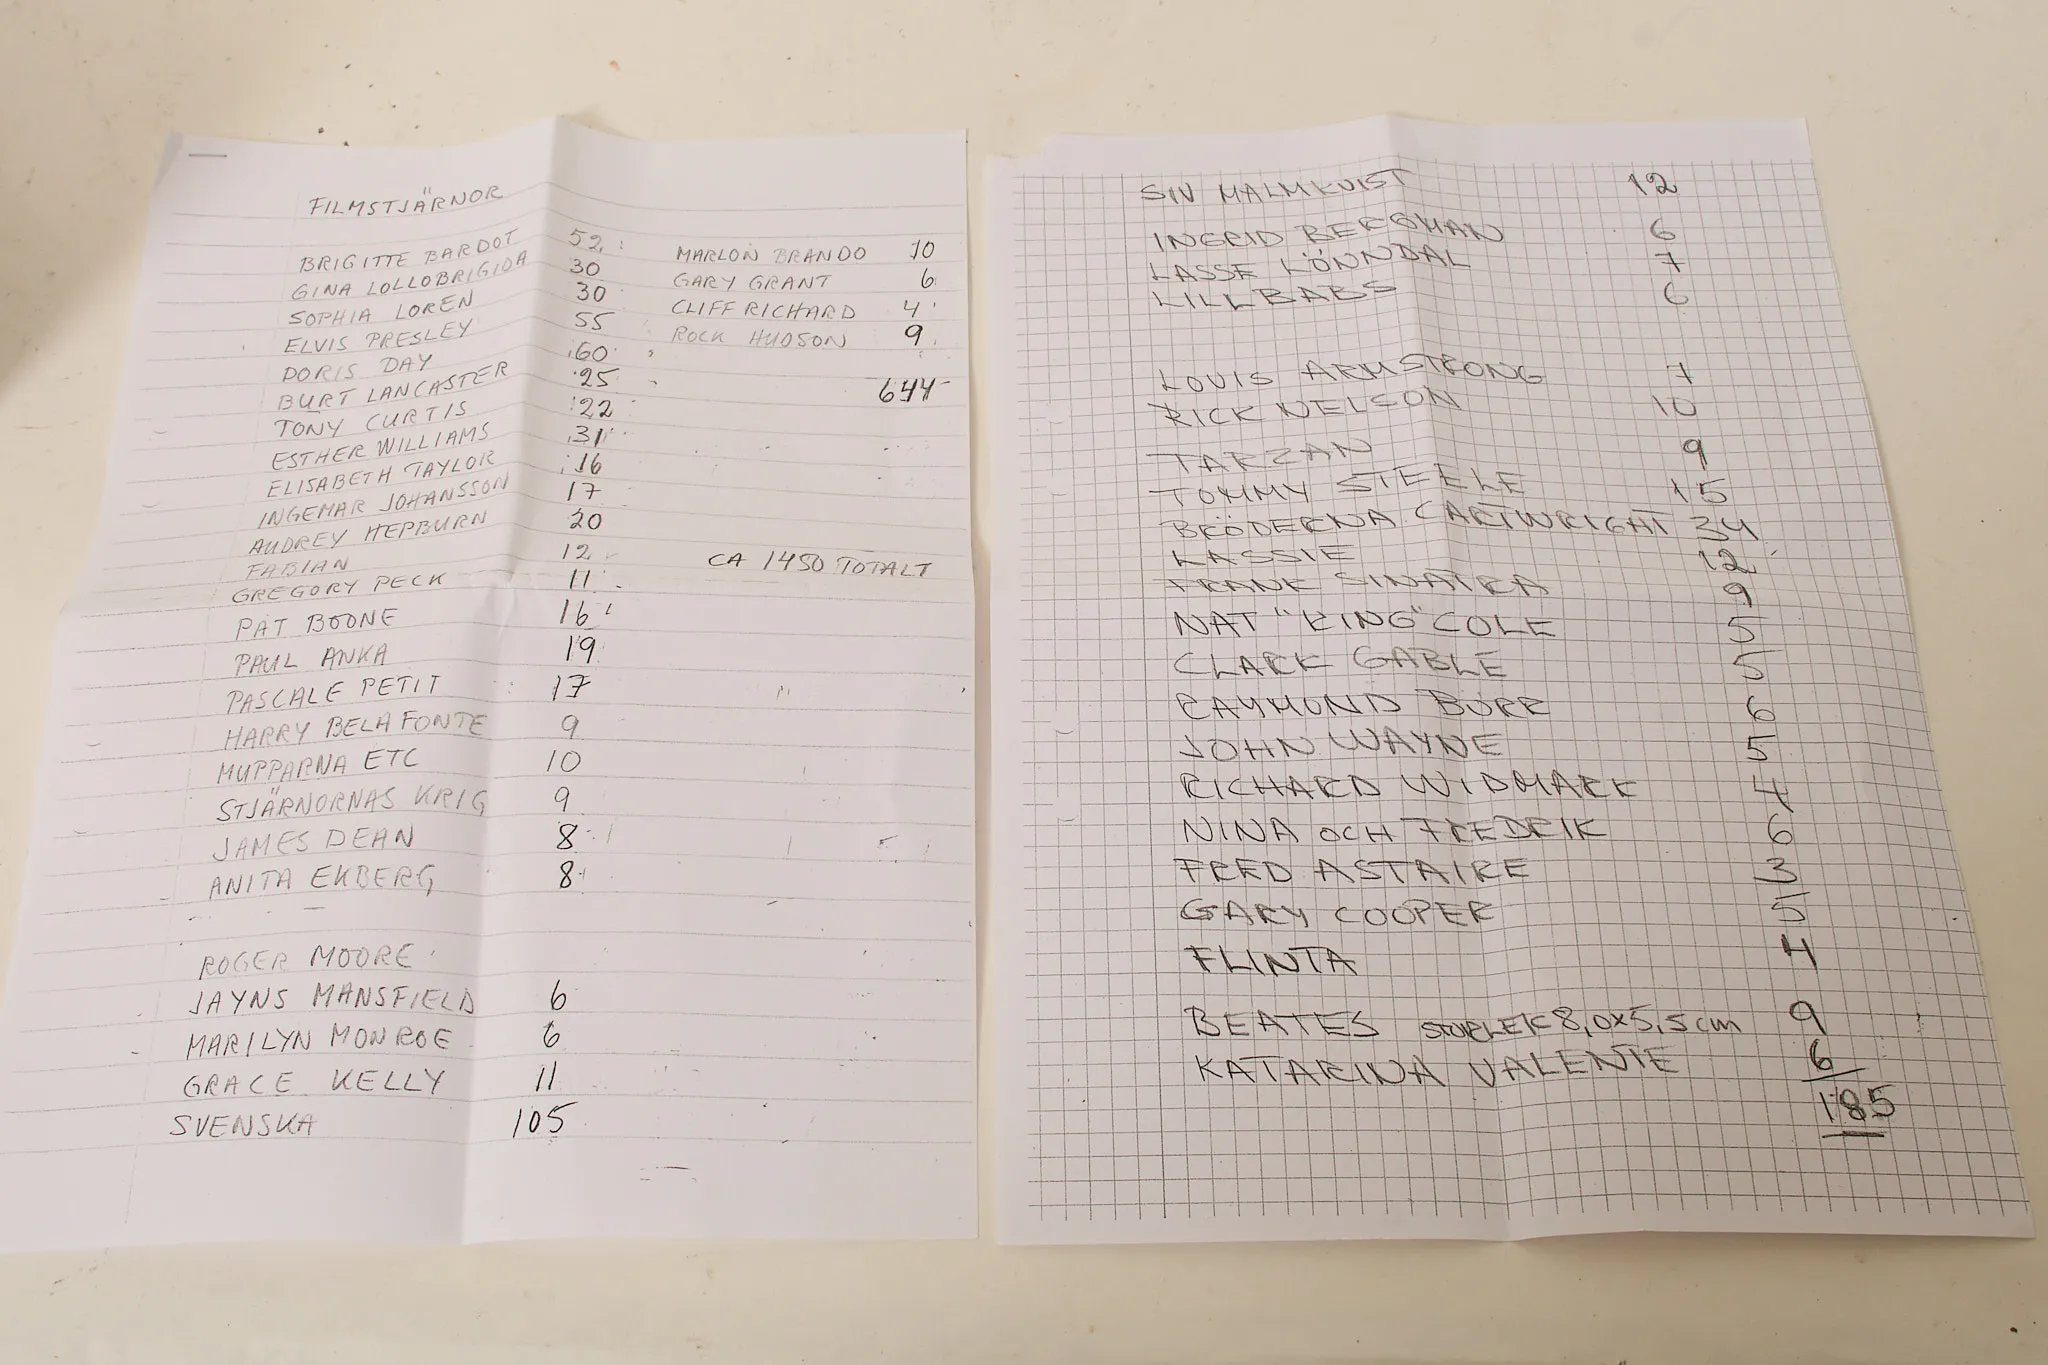 FILMSTJÄRNOR
BRIGITTE BARDOT 52
GINA LOLLOBRIGIDA 30
SOPHIA LOREN 30
ELVIS PRESLEY 55
DORIS DAY 60
BURT LANCASTER 25
TONY CURTIS 22
ESTHER WILLIAMS 31
ELISABETH TAYLOR 16
INGEMAR JOHANSSON 17
AUDREY HEPBURN 20
FABIAN 12
GREGORY PECK 11
PAT BOONE 16
PAUL ANKA 19
PASCALE PETIT 17
HARRY BELAFONTE 9
MUPPARNA ETC 10
STJÄRNORNAS KRIG 9
JAMES DEAN 8
ANITA EKBERG 8
ROGER MOORE
JAYNS MANSFIELD 6
MARILYN MONROE 6
GRACE KELLY 11
SVENSKA 105
MARLON BRANDO 10
GARY GRANT 6
CLIFF RICHARD 4
ROCK HUDSON 9
644
CA 1450 TOTALT
SIV MALMKVIST 12
INGRID BERGMAN 6
LASSE LÖNNDAL 7
LILLBABS 6
LOUIS ARMSTRONG 7
RICK NELSON 10
TARZAN 9
TOMMY STEELE 15
BRÖDERNA CARTWRIGHT 34
LASSIE 12
FRANK SINATRA 9
NAT "KING" COLE 5
CLARK GABLE 5
RAYMOND BURR 6
JOHN WAYNE 5
RICHARD WIDMARK 4
NINA OCH FREDRIK 6
FRED ASTAIRE 3
GARY COOPER 5
FLINTA 4
BEATES STORLEK 8,0x5,5cm 9
KATARINA VALENTE 6
185